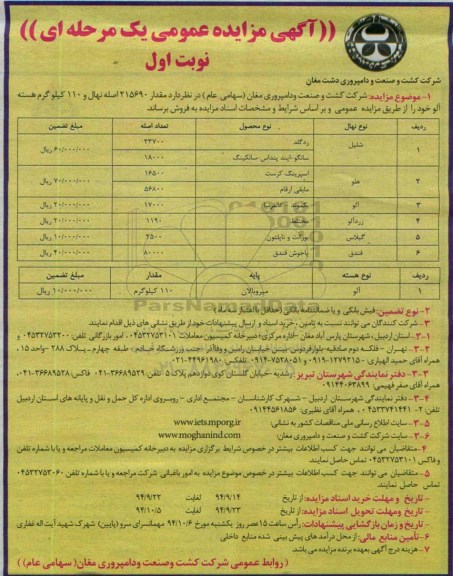 ((آگهی مزایده عمومی یک مرحله ای))
نوبت اول
شرکت کشت و صنعت و دامپروری دشت مغان
۱- موضوع مزایده: شرکت کشت و صنعت ودامپروری مغان (سهامی عام) در نظر دارد مقدار ۲۱۵۶۹۰ اصله نهال و ۱۱۰ کیلو گرم هسته
آلو خود را از طریق مزایده عمومی و بر اساس شرایط و مشخصات اسناد مزایده به فروش برساند.
ردیف نوع نهال نوع محصول تعداد اصله مبلغ تضمین
۱ شلیل ردگلد ۲۳۷۰۰ ۶۰/۰۰۰/۰۰۰ ریال
۱۸۰۰۰
۲ هلو اسپرینگ کرست ۱۶۵۰۰ ۷۰/۰۰۰/۰۰۰ ریال
۵۶۸۰۰
۳ آلو ۱۷۰۰۰ ۲۰/۰۰۰/۰۰۰ ریال
۴ زردآلو مختلط ۱۱۹۰ ۲۰/۰۰۰/۰۰۰ ریال
۵ گیلاس ۲۵۰۰ ۱۰/۰۰۰/۰۰۰ ریال
۶ فندق پاجوش فندق ۸۰۰۰۰ ۴۰/۰۰۰/۰۰۰ ریال
ردیف نوع هسته پایه مقدار مبلغ تضمین
۱ آلو میروبالان ۱۱۰ کیلوگرم ۱۰/۰۰۰/۰۰۰ ریال
ParsNamadData
۲- نوع تضمین: فیش بانکی و یا ضمانتنامه بانکی
۳- شرکت کنندگان می توانند نسبت به تامین، خرید اسناد و ارسال پیشنهادات خود از طریق نشانی های ذیل اقدام نمایند
۳-۱- استان اردبیل، شهرستان پارس آباد مغان
۳-۲- تهران - فلکه دوم صادقیه
همراه آقای حمید الهیاری
۳-۳- دفتر نمایندگی شهرستان تبریز
همراه آقای صفر فهیمی ۰۹۱۴۴۰۶۳۸۹۹
۳-۴- دفتر نمایندگی شهرستان اردبیل - شهرک کارشناسان - مجتمع اداری - روبروی اداره کل حمل و نقل و پایانه های استان اردبیل
همراه آقای نظیری: ۰۹۱۴۴۵۶۱۸۵۶
۳-۵- سایت اطلاع رسانی ملی مناقصات کشور به نشانی: www.iets.mporg.ir
۳-۶- سایت شرکت کشت و صنعت و دامپروری مغان: www.moghanind.com
۴- متقاضیان می توانند جهت کسب اطلاعات بیشتر در خصوص شرایط برگزاری مزایده به دبیرخانه کمیسیون معاملات مراجعه و یا با شماره تلفن
و فاکس ۰۴۵۳۲۷۵۳۱۰۱ تماس حاصل نمایند.
۵- متقاضیان می توانند جهت کسب اطلاعات بیشتر در خصوص موضوع مزایده به امور باغبانی شرکت مراجعه و یا با شماره تلفن ۰۴۵۳۲۷۵۳۰۶۰
تماس حاصل نمایند
- تاریخ و مهلت خرید اسناد مزایده: از تاریخ ۹۴/۹/۱۴ لغایت ۹۴/۹/۲۲
- تاریخ و مهلت تحویل اسناد مزایده: از تاریخ ۹۴/۹/۲۳ لغایت ۹۴/۱۰/۵
- تاریخ و زمان بازگشایی پیشنهادات: رأس ساعت ۱۵ عصر روز یکشنبه مورخ ۹۴/۱۰/۶ مهمانسرای سرو (پایین) شهرک شهید آیت اله غفاری
۶- تأمین منابع مالی: از محل درآمد های پیش بینی شده منابع داخلی
۷- هزینه درج آگهی بعهده برنده مزایده می باشد.
(روابط عمومی شرکت کشت وصنعت ودامپروری مغان (سهامی عام))